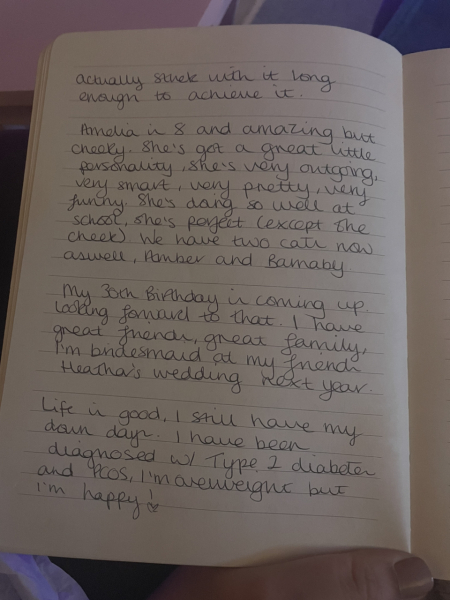 actually stuck with it long
enough to achieve it.
Amelia is 8 and amazing but
cheeky. She's got a great little
personality, she's very outgoing,
very smart, very pretty, very
funny. She's doing so well at
school, she's perfect (except the
cheek) We have two cats now
aswell, Amber and Barnaby
My 30th Birthday is coming up.
Looking forward to that. I have
great friends, great family,
I'm bridesmaid at my friends
Heatha's wedding next year.
Life is good, I still have my
down days. I have been
diagnosed w/ Type 2 diabetes
and PCOS, I'm overweight but
I'm happy!